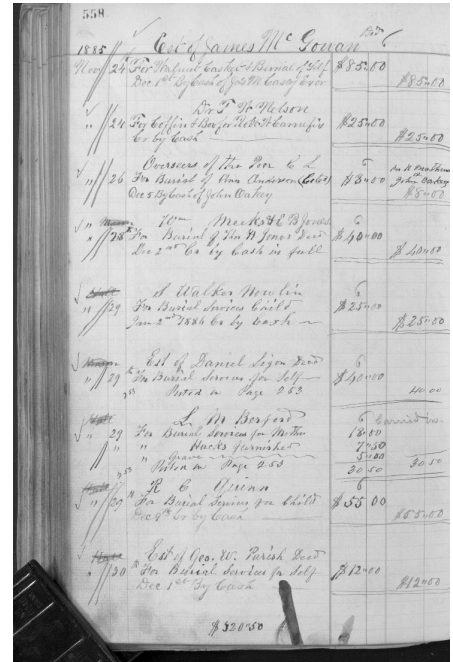 558
1885 Est of James McGowan
Nov 24 For Walnut Casket & Burial of Self $85.00
Dec 1st By Cash of Jas M Casey Exor $85.00
Dr T W Nelson
" 24 For Coffin & Box for $25.00
Cr by Cash $25.00
Overseers of the Poor C L
" 26 For Burial of Ann Anderson (Cold) $8.00 John Oakey
Dec 5 By Cash of John Oakey $8.00
Wm Meeks & E B Jones
" 28 For Burial of Thos H Jones Decd $40.00
Dec 2nd Cr by Cash in full $40.00
S Walker Nowlin
" 29 For Burial Services Child $25.00
Jan 2nd 1886 Cr by Cash $25.00
Est of Daniel Sigon Decd
" 29 For Burial Services for Self $40.00
253 Posted on Page 253 40.00
L M Berford Carried on
" 29 For Burial Services for Mother 18.00
" " Hacks furnished 7.50
" Grave 5.00
253 Posted on Page 253 30.50 30.50
R C Quinn
" 29 For Burial Services for Child $55.00
Dec 9th Cr by Cash $55.00
Est of Geo. W. Parish Decd
" 30 For Burial Services for Self $12.00
Dec 1st By Cash $12.00
$320.50